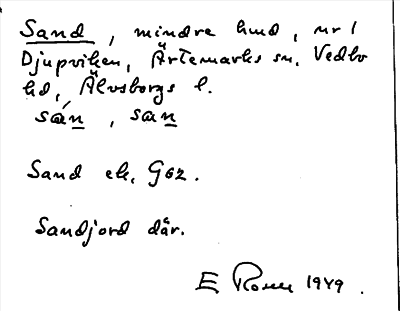 Sand, mindre hmd, nr 1
Djupviken, Ärtemarks sn, Vedbo
hd, Älvsborgs l.
sán, sàn
Sand ek. Göz.
Sandjord där.
E 1949.